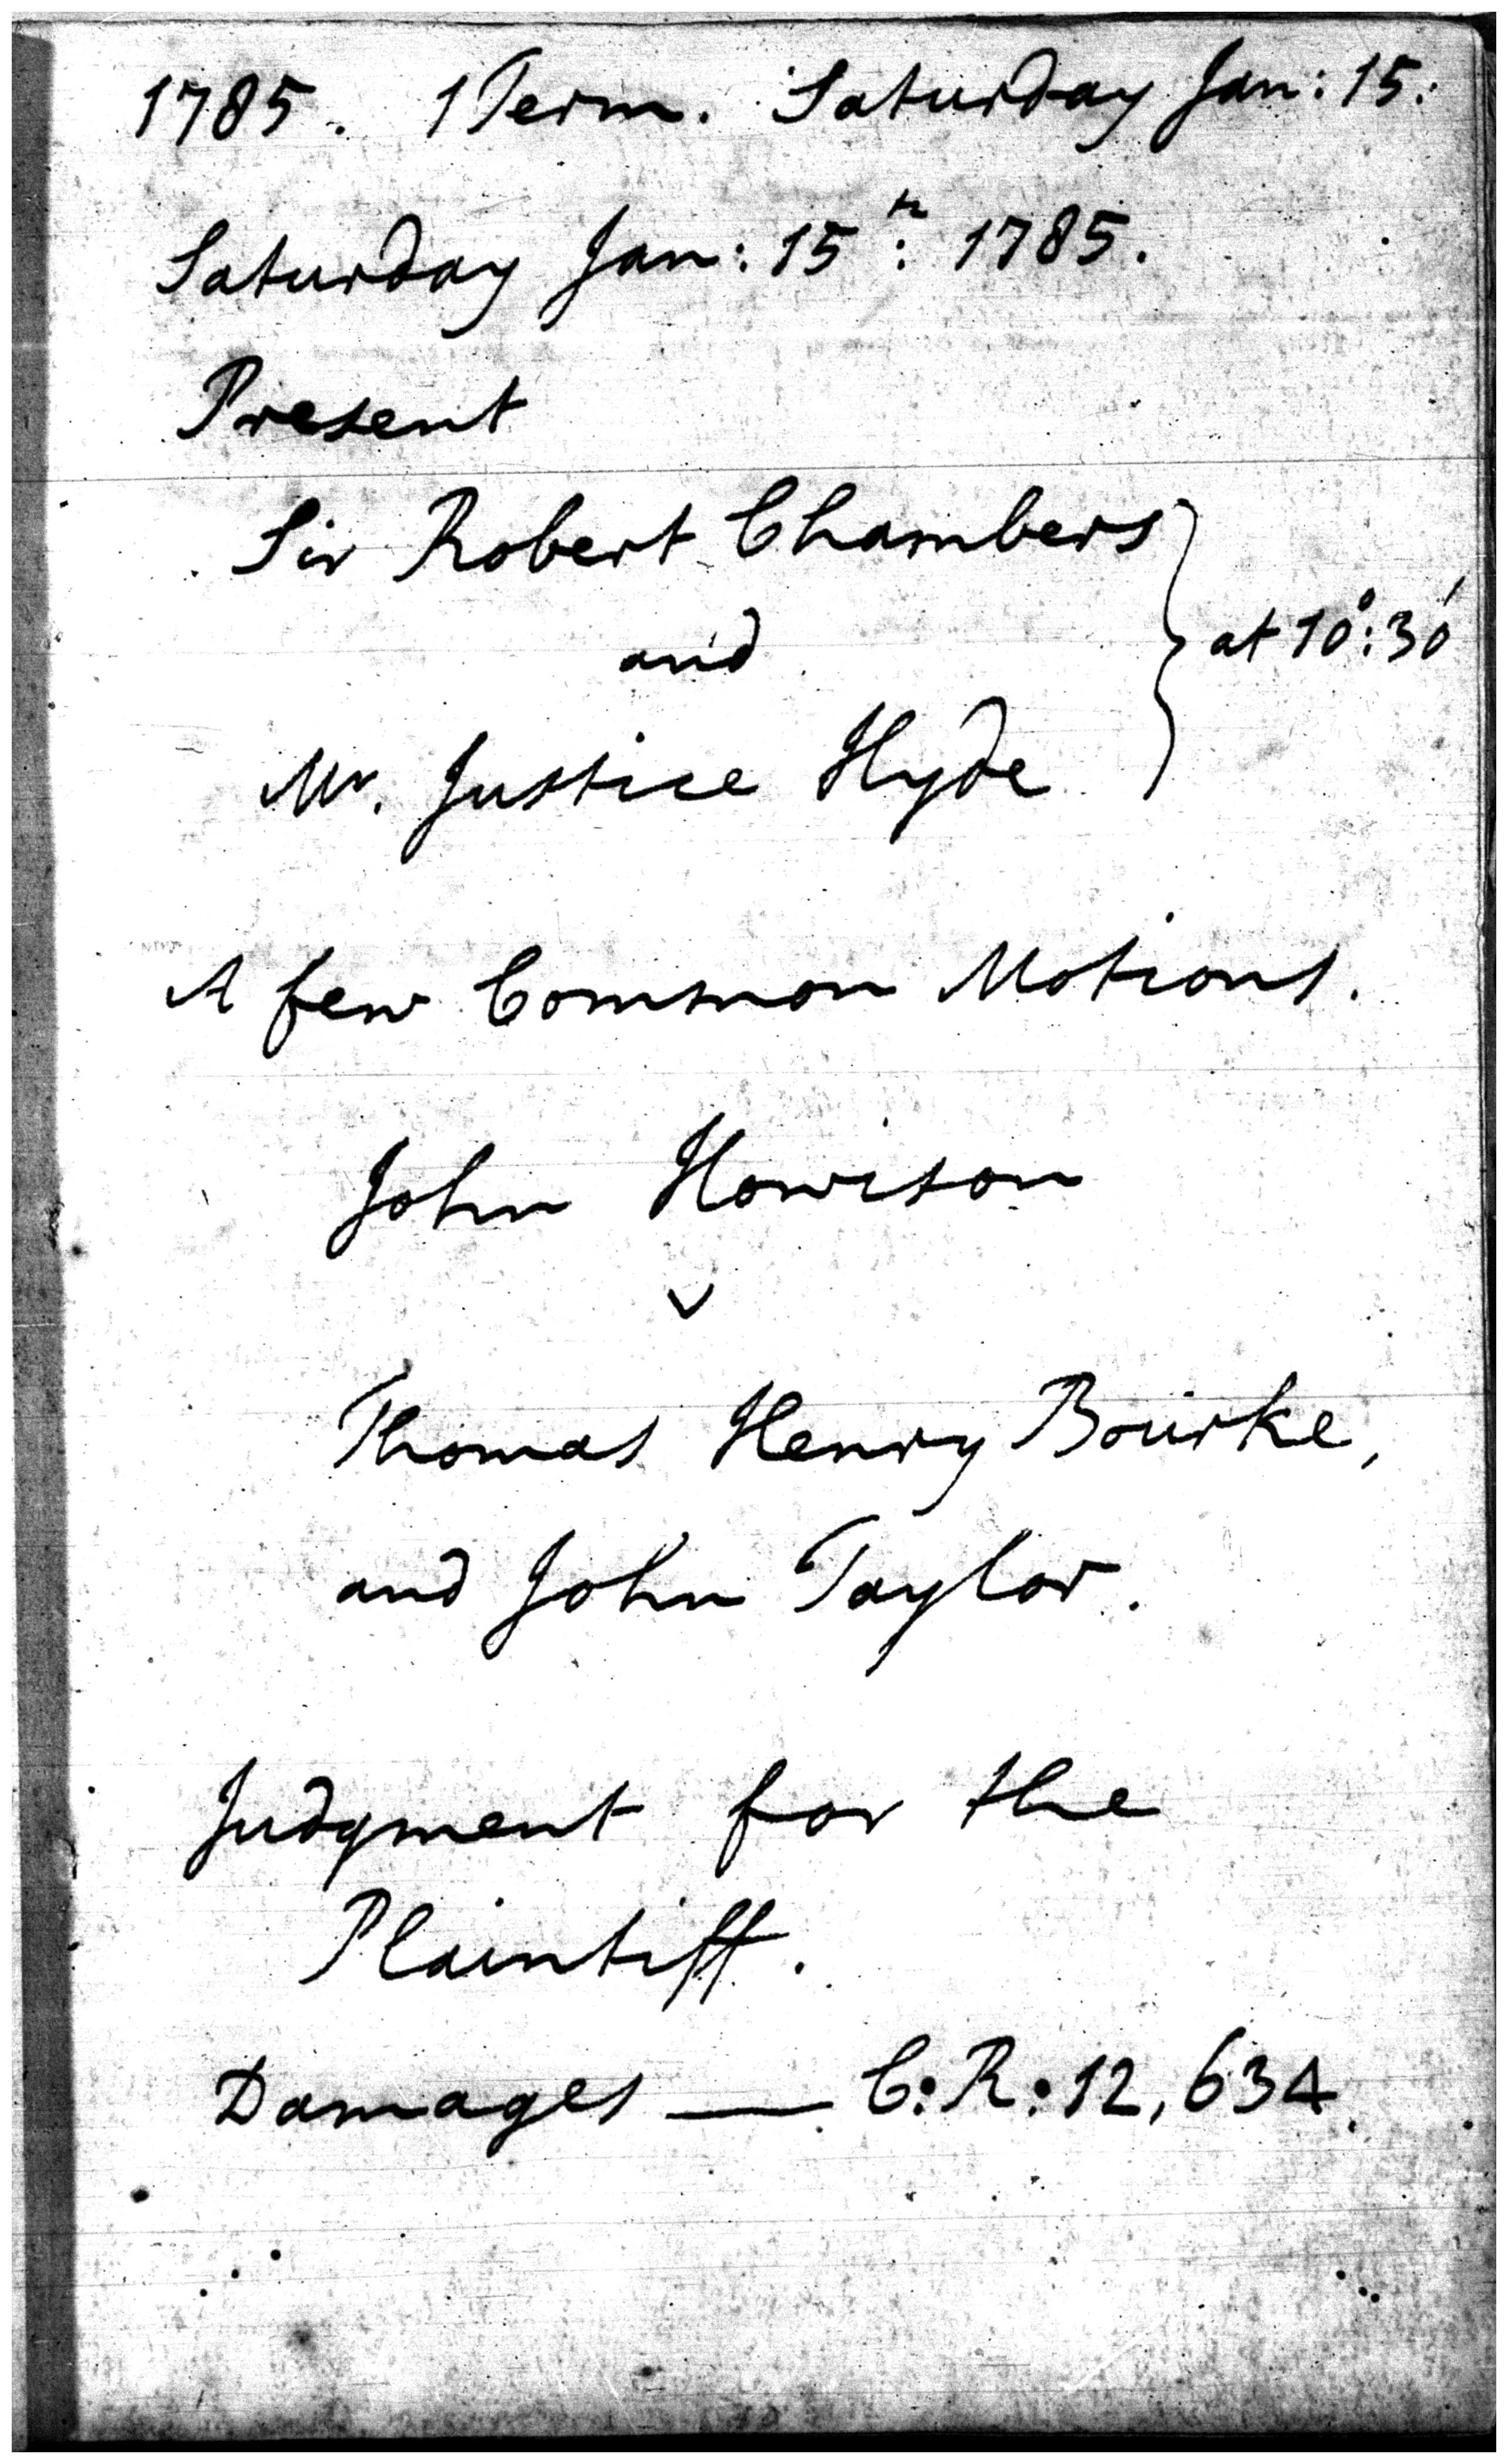 1785. 1 Term. Saturday Jan: 15:
Saturday Jan: 15th: 1785.
Present
Sir Robert Chambers
and
at 10°:30'
Mr. Justice Hyde
A few Common Motions.
John Howison
v
Thomas Henry Bourke,
and John Taylor.
Judgment for the
Plaintiff.
Damages — C:R:12,634.